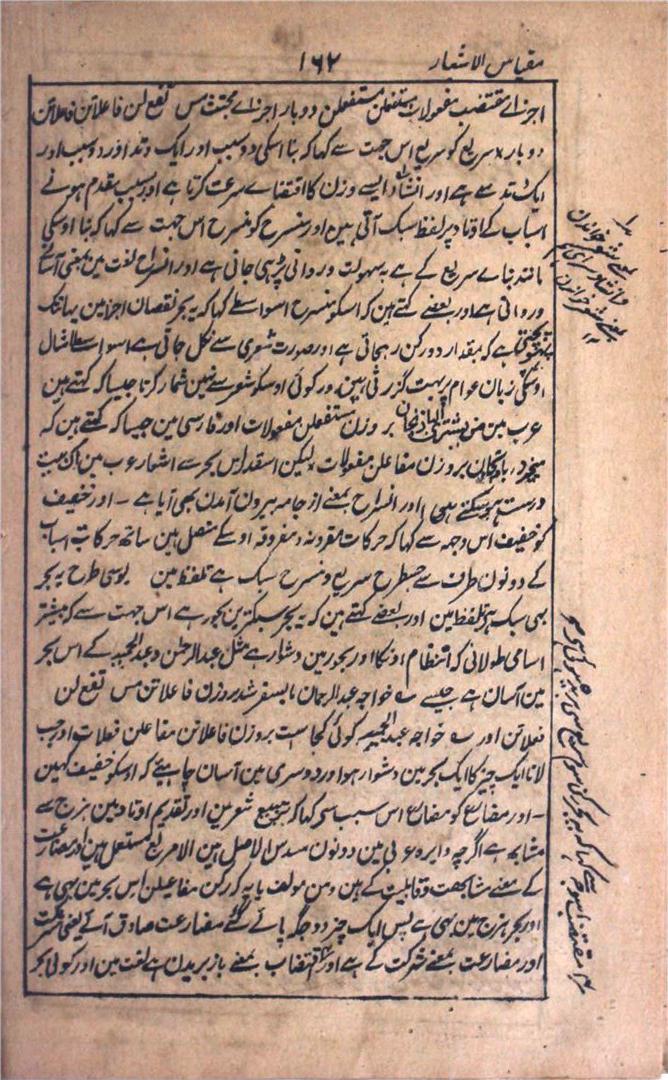 مقیاس الاشعار ۱۶۲
اجزاے مقتضب مفعولات مستفعلن مستفعلن دوبار اجزاے مجتث مس تفع لن فاعلاتن فاعلاتن
دوبار × سریع کو سریع اس جہت سے کہا کہ بنا اسکی دو سبب اور ایک وتد اور دو سبب اور
ایک وتد سے ہے اور انشاد ایسے وزن کا اقتضاے سرعت کرتا ہے اور بسبب مقدم ہونے
اسباب کے اوتاد پر لفظ سبک آتی ہین اور منسرح کو منسرح اس جہت سے کہا کہ بنا اوسکی
مانند بناے سریع کے ہے بہ سہولت و روانی پڑہی جاتی ہے اور انسراح لغت مین بمعنی آسانی
و روانی ہے اور بعضے کہتے ہین کہ اسکو منسرح اسواسطے کہا کہ یہ بحر نقصان اجزا مین یہانتک
پہنچتی ہے کہ بمقدار دو رکن رہجاتی ہے اور صورت شعری سے نکل جاتی ہے اسواسطے امثال
اوسکی زبان عوام پر بہت گزرتی ہین اور کوئی اوسکو شعر سے نہین شمار کرتا جیسا کہ کہتے ہین
عرب مین من یشتری الباذنجان بر وزن مستفعلن مفعولات اور فارسی مین جیسا کہ کہتے ہین کہ
میخرد بادنجان بر وزن مفاعلن مفعولات لیکن اسقدر اس بحر سے اشعار عرب مین ایک بیت
درست ہوسکتے ہین اور انسراح بمعنے از جامہ بیرون آمدن بھی آیا ہے - اور خفیف
کو خفیف اس وجہ سے کہا کہ حرکات مقرونہ و مفروقہ اوسکے متصل ہین ساتھ حرکات اسباب
کے دونون طرف سے جسطرح سریع و منسرح سبک ہے تلفظ مین یوسی طرح یہ بحر
بھی سبک ہے تلفظ مین اور بعضے کہتے ہین کہ یہ بحر سبکترین بحور ہے اس جہت سے کہ بیشتر
اسامی طولانی کہ انتظام اونکا اور بحور مین دشوار ہے مثل عبدالرحمٰن و عبدالحمید کے اس بحر
مین آسان ہے جیسے ؎ خواجہ عبدالرحمان ما بسفر شد بروزن فاعلاتن مس تفع لن
فعلاتن اور ؎ خواجہ عبدالحمید کوئی کجاست بروزن فاعلاتن مفاعلن فعلات اور جب
لانا ایک چیز کا ایک بحر مین دشوار ہو اور دوسری مین آسان چاہیئے کہ اوسکو خفیف کہین
- اور مضارع کو مضارع اس سبب سی کہا کہ تربیع شعر مین اور تقدیم اوتاد مین ہزج سے
مشابہ ہے اگرچہ دایرہ عربی مین دونون مسدس الاصل ہین الا مربع مستعمل ہین اور مضارعت
کے معنے مشابہت و قابلیت کے ہین و من مولف یا یہ کہ رکن مفاعیلن اس بحر مین بہی ہے
اور بحر ہزج مین بہی ہے پس ایک چیز دو جگہ پائے گئے مضارعت صادق آئے یعنی شرکت
اور مضارعت بمعنے شرکت کے ہے اور اقتضاب بمعنے باز بریدن ہے لغت مین اور کوئی بحر